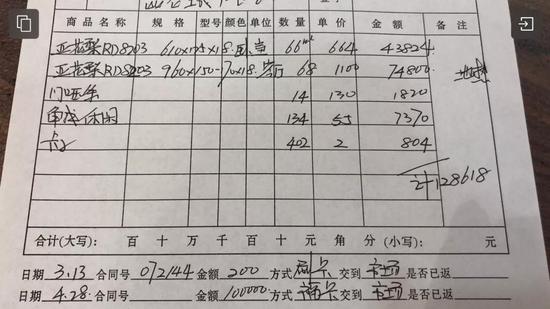 商品名称 规格 型号 颜色 单位 数量 单价 金额 备注
亚花梨RD8203 610x125x18 卧室 66m² 664 43824
亚花梨RD8203 960x150-170x18 客厅 68 1100 74800 地热
14 130 1820
134 55 7370
卡子 402 2 804
计128618
合计(大写): 百 十 万 千 百 十 元 角 分 (小写): 元
日期 3.13 合同号 072144 金额 200 方式 刷卡 交到 卡场 是否已返
日期 4.28 合同号 金额 100000. 方式 刷卡 交到 是否已返